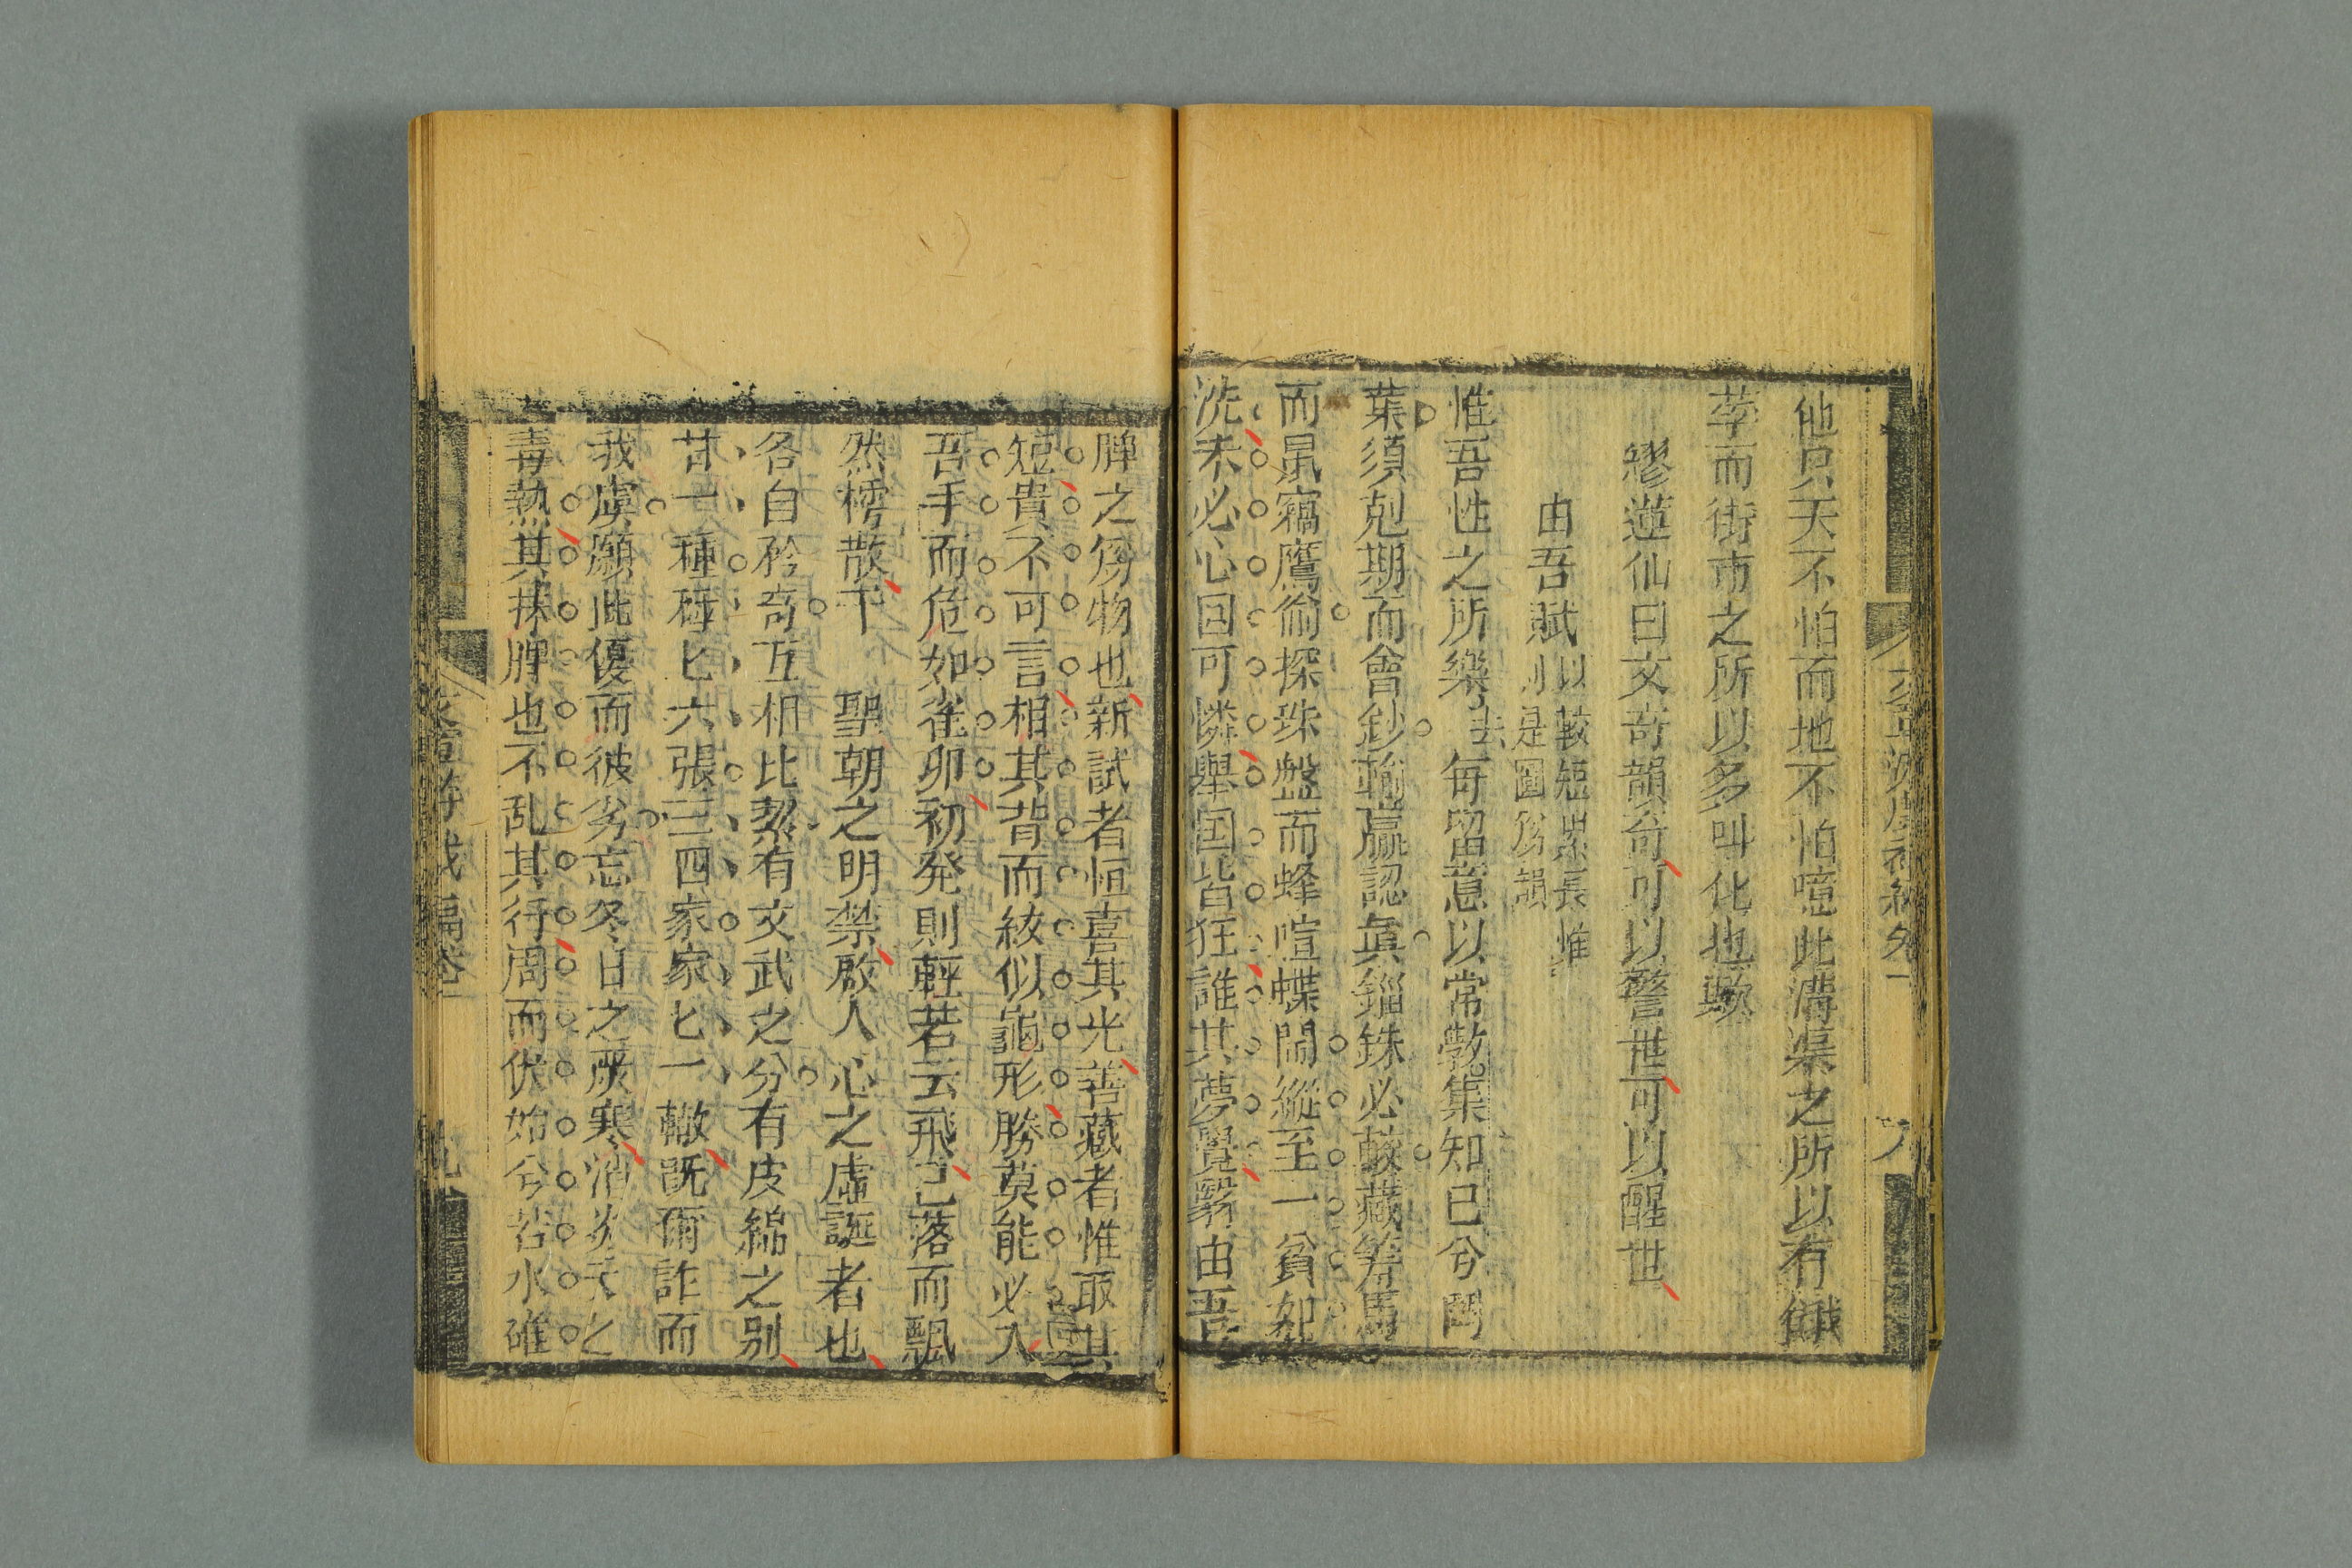 他只天不怕而地不怕噫此溝渠之所以有餓
莩而街市之所以多叫化也歟
繆蓮仙曰文奇韻奇可以警世可以醒世
由吾賦 以較短絜長惟
則是圖為韻
惟吾性之所樂去每留意以常教集知已兮鬥
葉須剋期而會鈔輸贏認眞錙銖必較藏籌馬
而鼠竊鷹偷探珠盤而蜂喧蝶閙縱至一貧如
洗未必心囬可憐舉国皆狂誰其夢覺繄由吾
牌之為物也新試者恒喜其光善藏者惟取其
短貴不可言相其背而紋似龜形勝莫能必入
吾手而危如雀卵初発則輕若云飛已落而飄
然樗散下 聖朝之明禁啟人心之虛誕者也
各自矜奇互相比絜有文武之分有皮綿之别
甘一種種匕六張三四家家匕一轍既爾詐而
我虞願此優而彼劣忘冬日之嚴寒消炎天之
毒熱其抹牌也不乱其行周而伏始兮若水碓